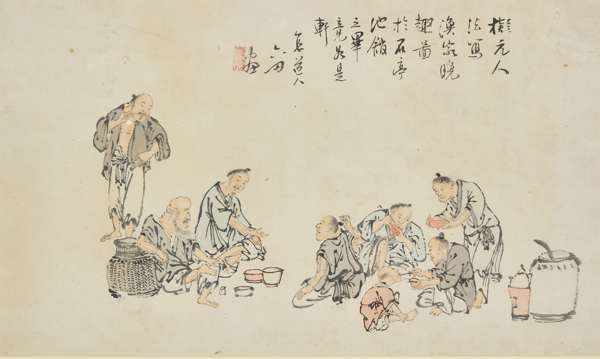 擬元人
法寫
漁家
趣圖
於石亭
池館
之畢
竟如是
軒
道人